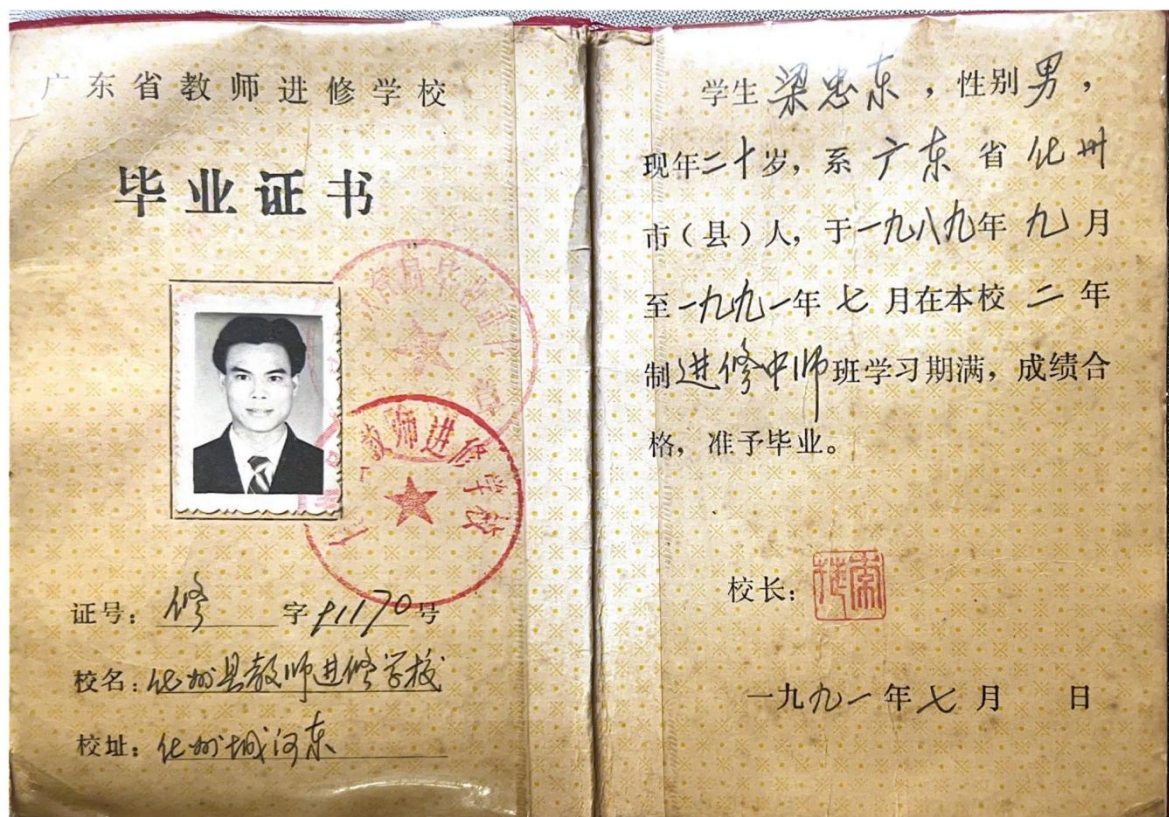 广东省教师进修学校
毕业证书
教师进修学校
证号：修字91170号
校名：化州县教师进修学校
校址：化州城河东
学生梁忠东，性别男，
现年二十岁，系广东省化州
市（县）人，于一九八九年九月
至一九九一年七月在本校二年
制进修中师班学习期满，成绩合
格，准予毕业。
校长：
一九九一年七月 日